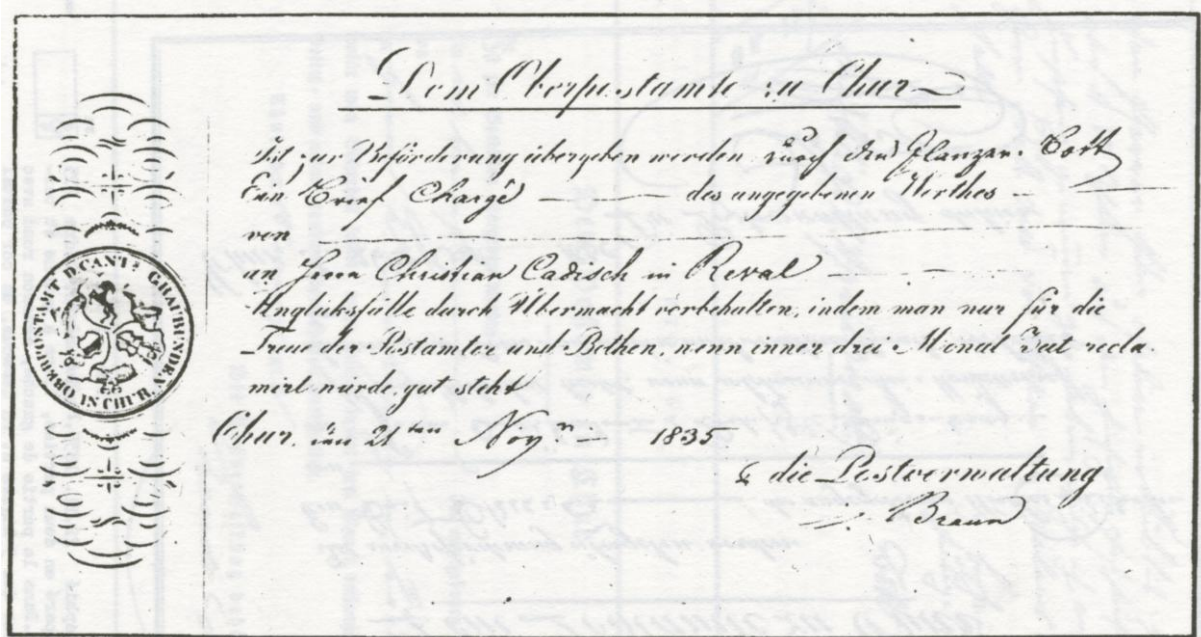 Dem Oberpostamte zu Chur
Ist zur Beförderung übergeben werden durch den Ilanzer Bott
Ein Brief Chargé — des angegebenen Werthes —
von
an Herrn Christian Cadisch in Reval —
Unglüksfälle durch Übermacht vorbehalten, indem man nur für die
Treue der Postämter und Bothen, wenn inner drei Monat Dat recla-
mirt würde, gut steht
Chur, den 21ten Novr — 1835
die Postverwaltung
Braun
OBERPOSTAMT D. CANT: GRAUBÜNDEN IN CHUR.